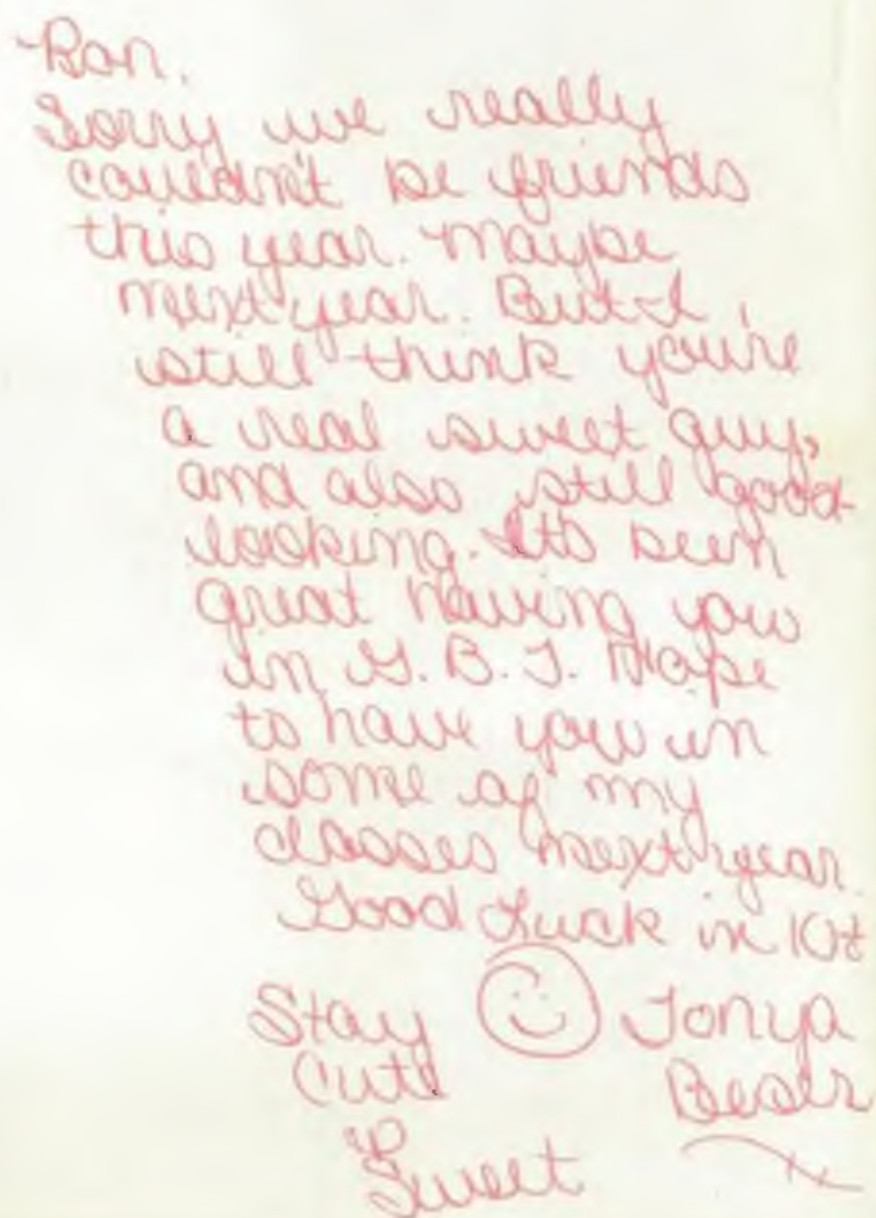 Ron,
Sorry we really
couldn't be friends
this year. Maybe
next year. But I
still think you're
a real sweet guy,
and also still good-
looking. It's been
great having you
in G.B.I. Hope
to have you in
some of my
classes next year.
Good Luck in 10th
Stay Tonya
Cute
&
Sweet